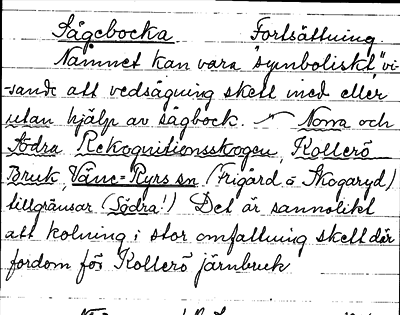 Sågebocka Fortsättning.
Namnet kan vara "symboliskt", vi-
sande att vedsågning skett med eller
utan hjälp av sågbock. — Norra och
Södra Rekognitionsskogen, Kollerö
Bruk, Väne-Ryrs sn (Frigård o Skogaryd)
tillgränsar (Södra!) Det är sannolikt
att kolning i stor omfattning skett där
fordom för Kollerö järnbruk